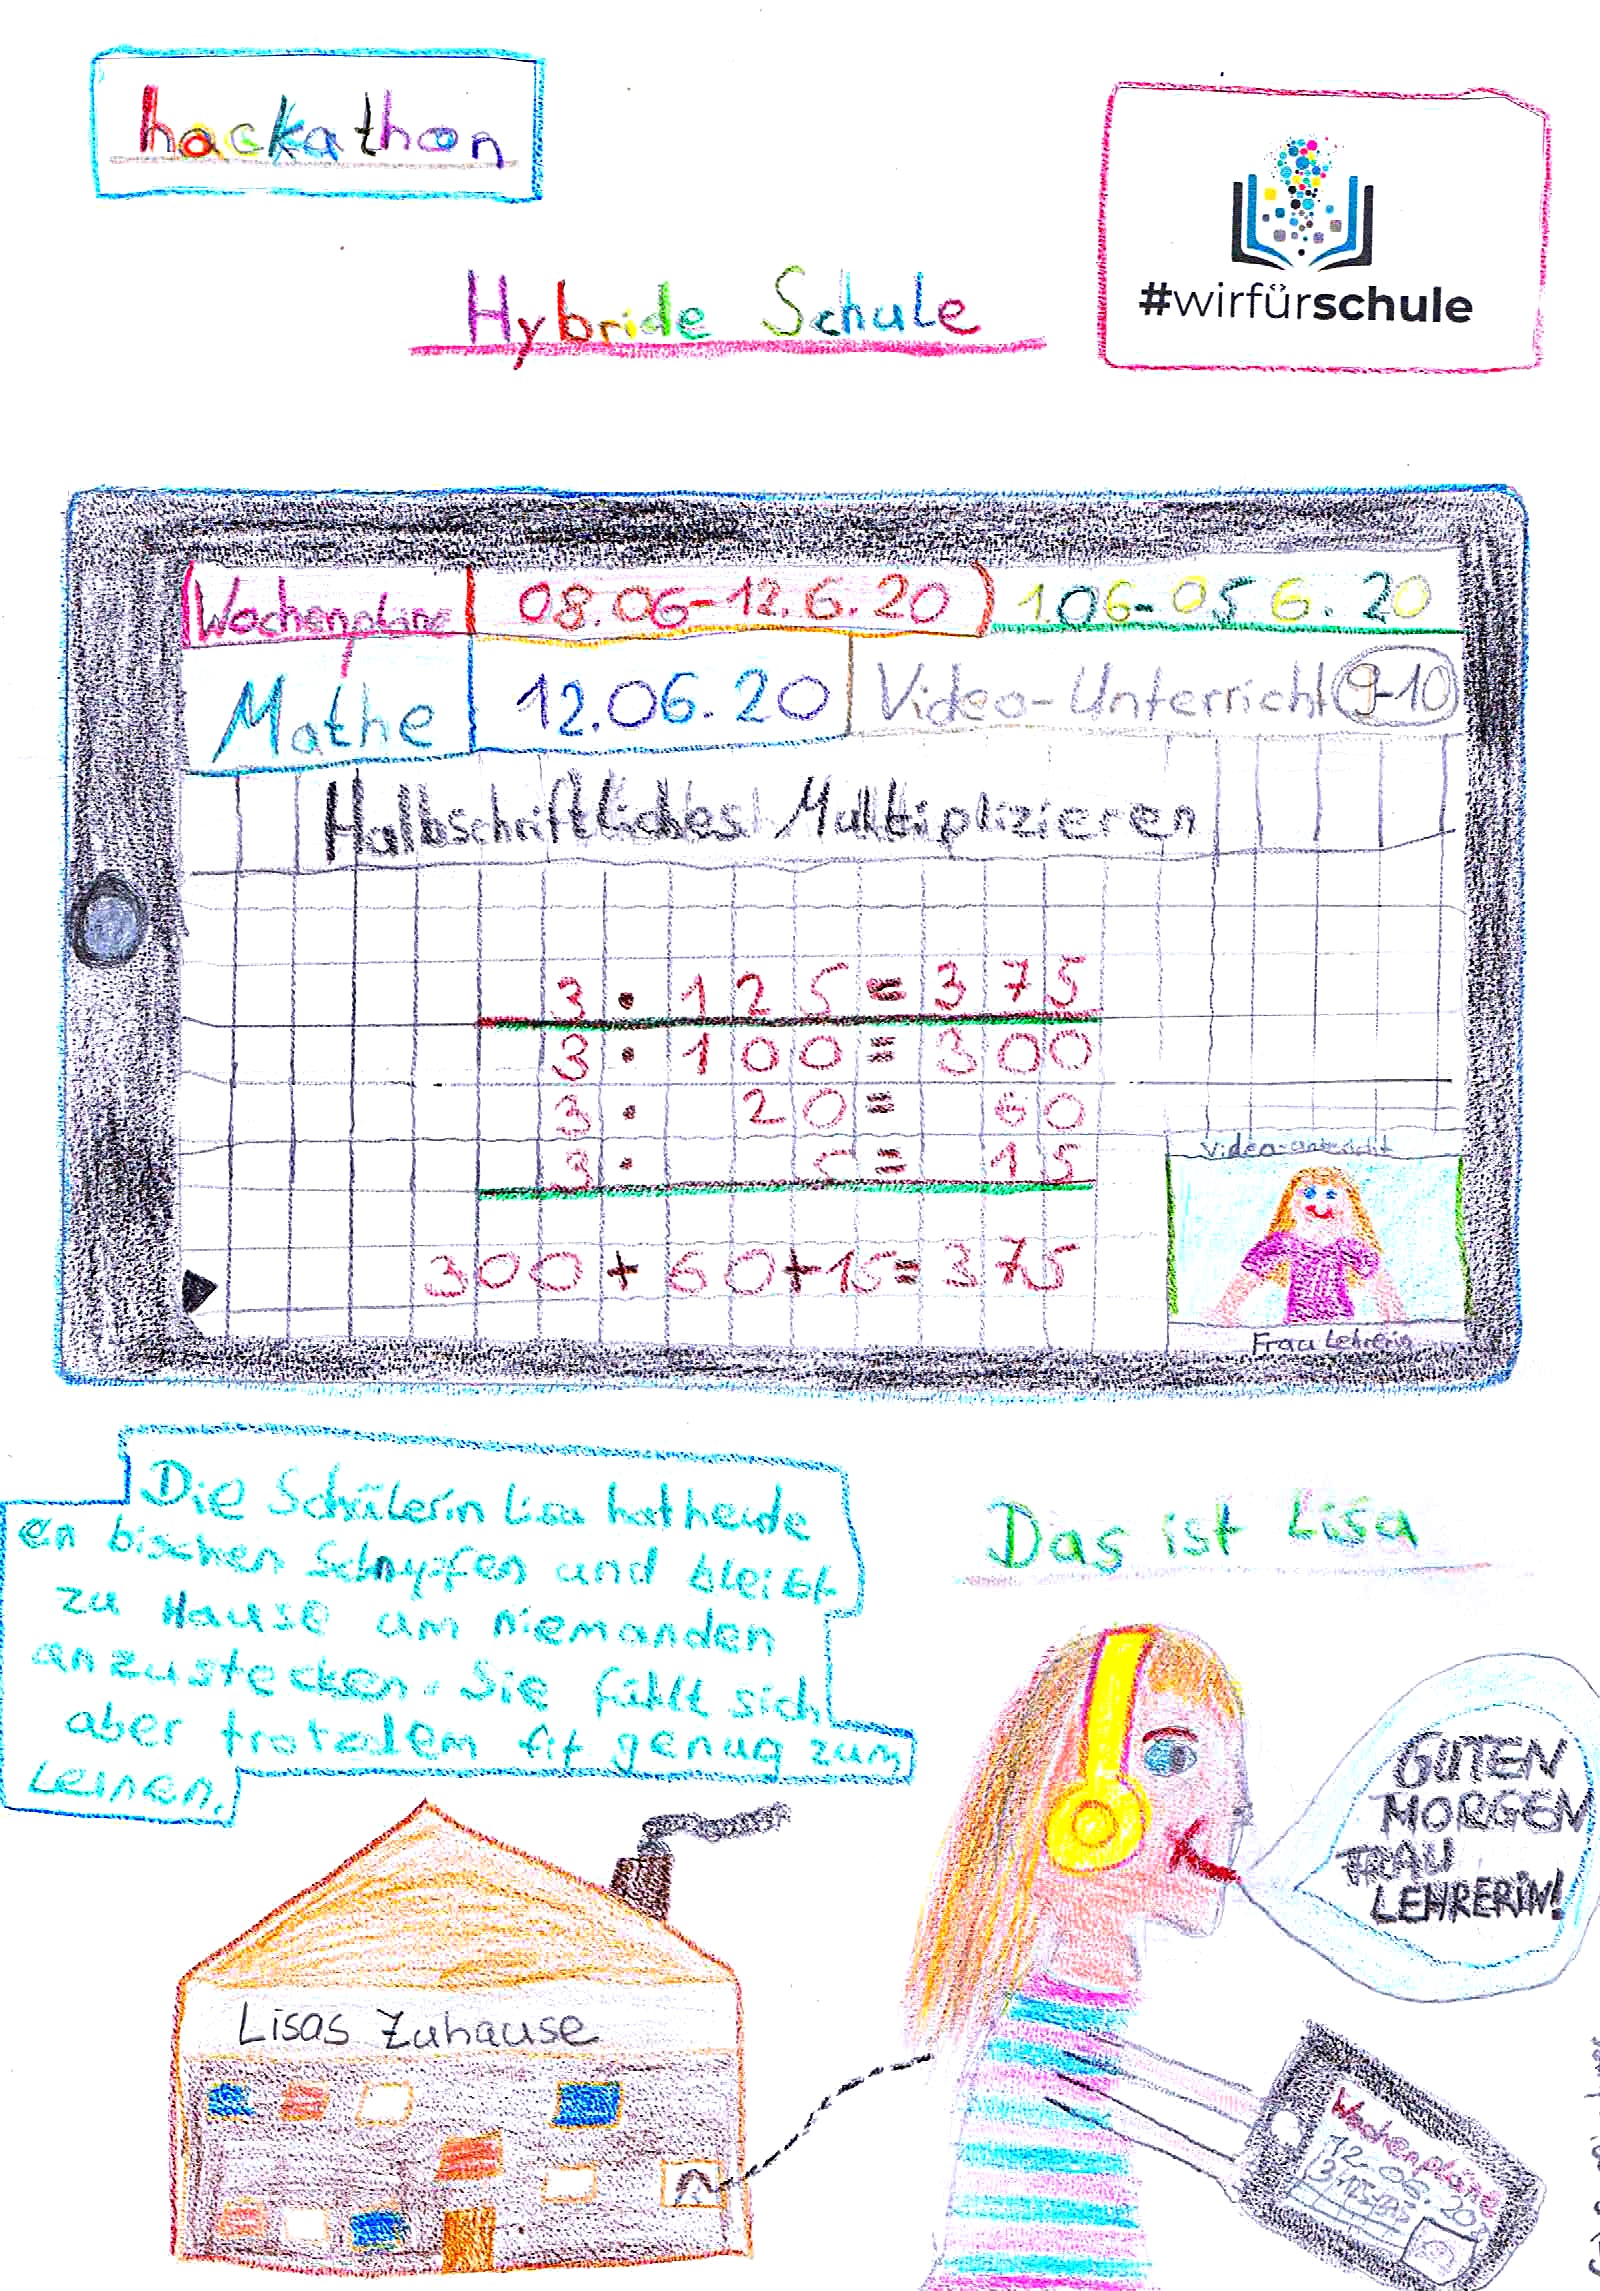 hackathon
#wirfürschule
Hybride Schule
Wochenpläne 08.06-12.6.20 1.06-05 6.20
Mathe 12.06.20 Video-Unterricht 9-10
Halbschriftliches Multiplizieren
3 · 125 = 375
3 · 100 = 300
3 · 20 = 60
3 · 5 = 15
300 + 60 + 15 = 375
Video-Unterricht
Frau Lehrerin
Die Schülerin Lisa hat heute
en bischen Schnupfen und bleibt
zu Hause um niemanden
anzustecken. Sie fühlt sich
aber trotzdem fit genug zum
Lernen.
Das ist Lisa
GUTEN
MORGEN
FRAU
LEHRERIN!
Lisas Zuhause
Wochenpläne
12.06.20